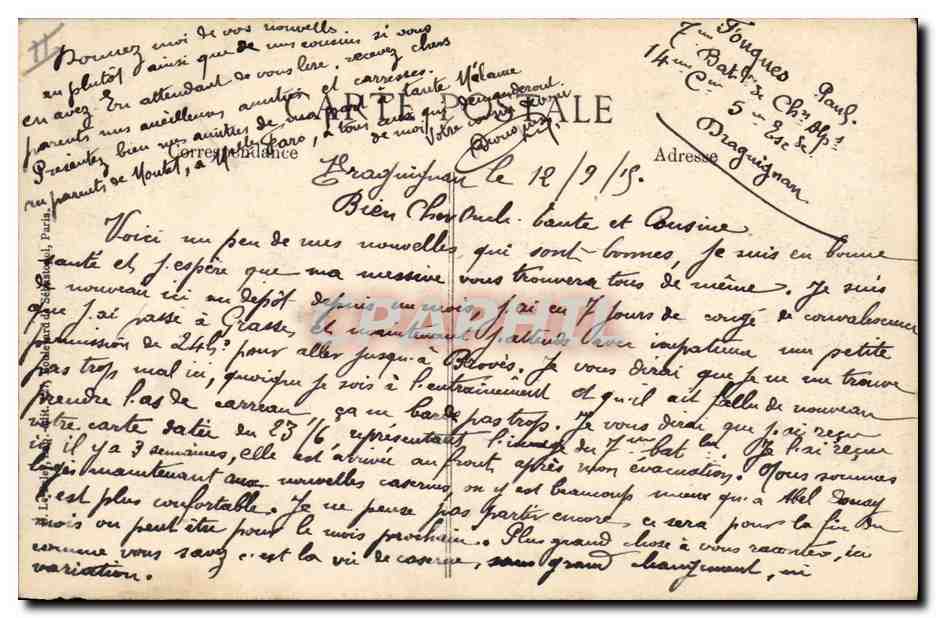 CARTE POSTALE
Correspondance
Adresse
Fouques Paul
7ème Bat.on de Ch.rs Alp.s
14ème Cie 5ème Esc.de
Draguignan
Draguignan le 12/9/15.
Bien Cher Oncle tante et Cousine
Voici un peu de mes nouvelles qui sont bonnes, je suis en bonne
santé et j'espère que ma missive vous trouvera tous de même. Je suis
de nouveau ici au depôt depuis un mois, j'ai eu 7 jours de congé de convalescence
que j'ai passé à Grasse, et maintenant j'attends avec impatience une petite
permission de 24h. pour aller jusqu'à Brovès. Je vous dirai que je ne me trouve
pas trop mal ici, quoique je sois à l'entraînement et qu'il ait fallu de nouveau
prendre l'as de carreau, ça ne barde pas trop. Je vous dirai que j'ai reçu
votre carte datée du 23/6, représentant l'image du 7ème bat.on. Je l'ai reçue
ici il y a 3 semaines, elle est arrivée au front après mon évacuation. Nous sommes
logés maintenant aux nouvelles casernes, on y est beaucoup mieux qu'à Abel Douay
c'est plus confortable. Je ne pense pas partir encore, ce sera pour la fin du
mois ou peut être pour le mois prochain. Plus grand chose à vous raconter, ici
comme vous savez c'est la vie de caserne, sans grand changement, ni
variation.
Donnez moi de vos nouvelles
au plutôt ainsi que de mes cousins si vous
en avez. En attendant de vous lire, recevez chers
parents mes meilleures amitiés et caresses.
Présentez bien mes amitiés de ma part à tante Mélanie
aux parents de Montet, à Melle Caro, à tous ceux qui demanderont
de moi. Votre cousin
L. Le Boulevard de Sébastopol, Paris.
CPAPHIL